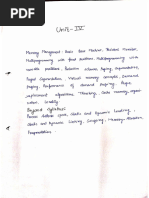 Unit-IV
Memory Management: Basic Bare Machine, Resident Monitor,
Multiprogramming with fixed partitions, Multiprogramming with
variable partitions, Protection schemes, Paging, Segmentation,
Paged Segmentation, Virtual memory concepts, Demand
Paging, Performance of demand paging, Page
replacement algorithms, Thrashing, Cache memory organi-
zation, Locality
Beyond Syllabus:
Process Address space, Static and Dynamic Loading,
Static and Dynamic Linking, Swapping, Memory Allocation,
Fragmentation